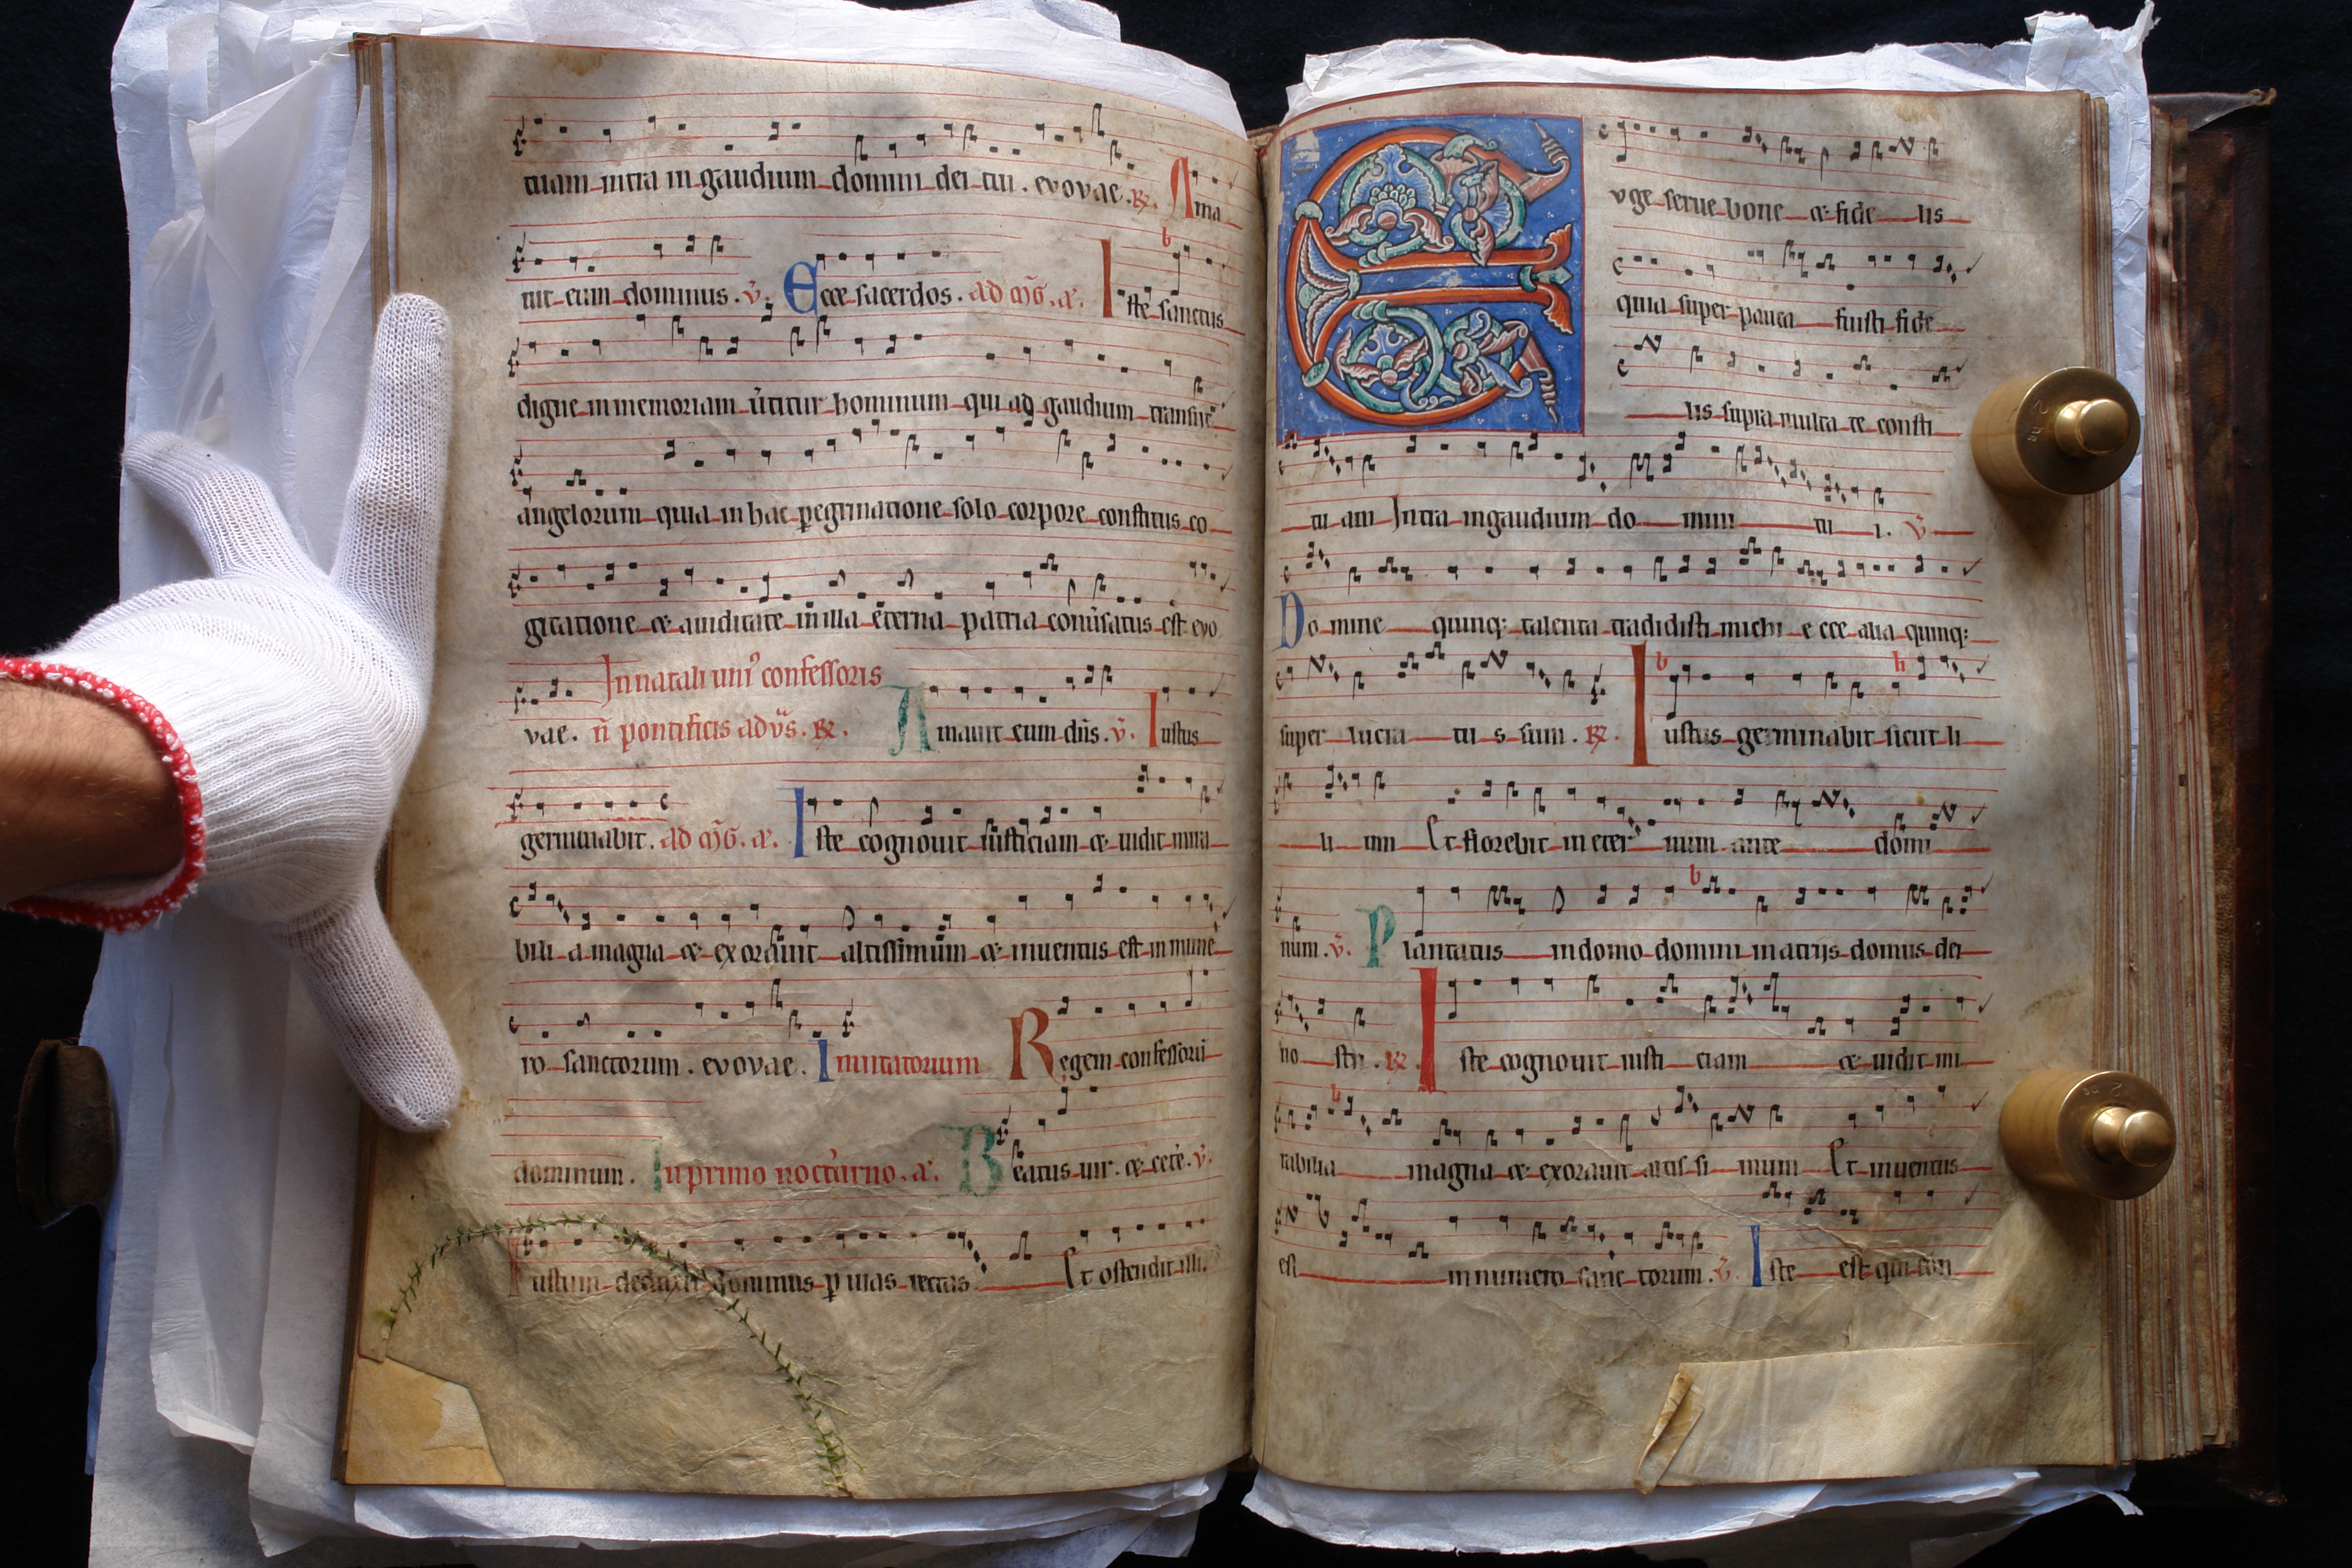 tuam intra in gaudium domini dei tui . evovae . R̶. Ama
uit eum dominus . v̄. Ecce sacerdos . ad m̄G . a. Iste sanctus
digne in memoriam u̅titur hominum qui ad gaudium transiit
angelorum quia in hac pegrinatione solo corpore constitus co
gitatione & auiditate in illa eterna patria conu̅satus est evo
In natali uni⁹ confessoris
vae . n̄ pontificis ad vs̄ . R̶. Amauit eum dn̄s . v̄. Iustus
germinabit . ad m̄G . a. Iste cognouit iusticiam & uidit mira
bilia magna & exorauit altissimum & inuentus est in nume
ro sanctorum . evovae . Inuitatorium Regem confessorū
dominum . In primo nocturno . a. Beatus uir . & cete . v̄.
Iustum deduxit dominus p uias rectas Et ostendit illi
Evge serue bone & fide lis
quia super pauca fuisti fide
lis supra multa te consti
tu am Intra in gaudium do mini tu i . v̄
Do mine quinq; talenta tradidisti michi e cce alia quinq;
super lucra tu s sum . R̶. Iustus germinabit sicut li
li um Et florebit in eter num ante domi
num . v̄. Plantatus in domo domini in atrijs domus dei
no stri . R̶. Iste cognouit iusti ciam & uidit mi
rabilia magna & exorauit altis si mum Et inuentus
est in numero sanc torum . v̄. Iste est qui con